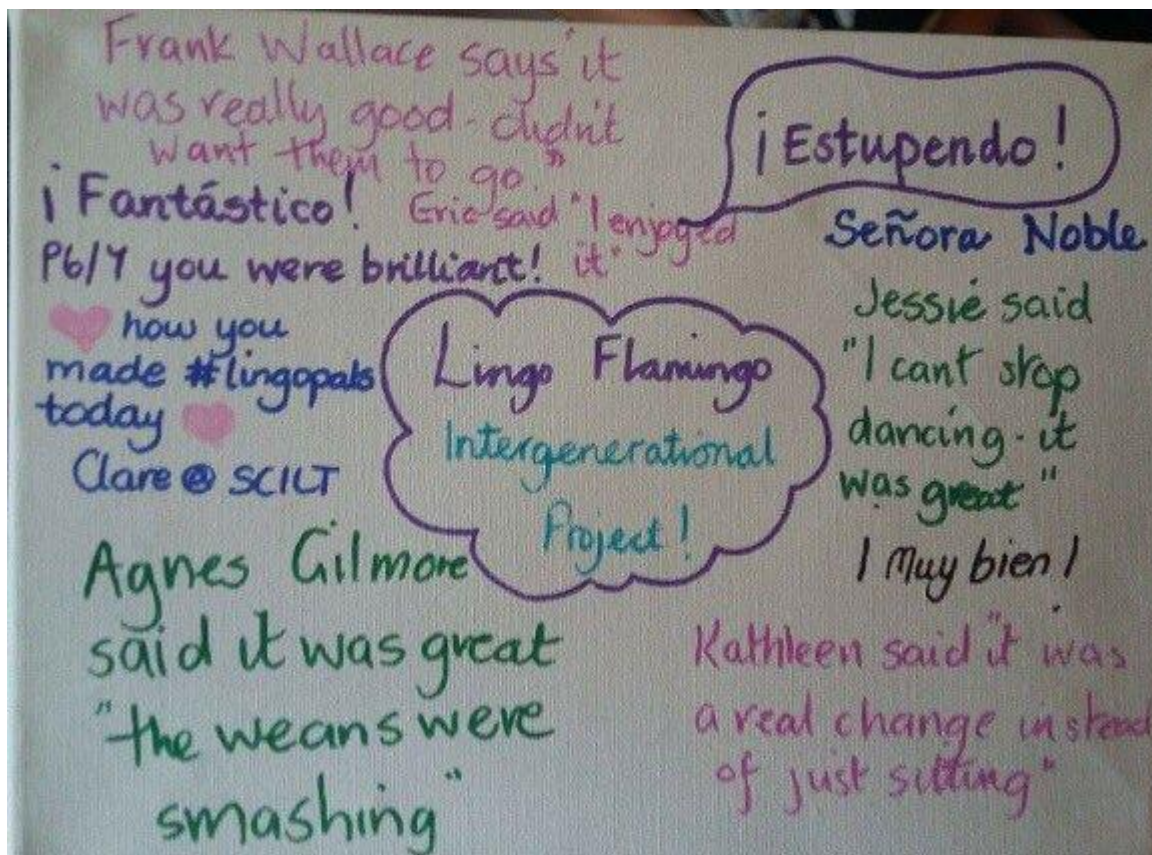 Frank Wallace says "it
was really good - didn't
want them to go."
¡Estupendo!
Señora Noble
¡Fantástico!
P6/7 you were brilliant!
Eric said "I enjoyed
it"
♥ how you
made #lingopals
today ♥
Clare @ SCILT
Lingo Flamingo
Intergenerational
Project!
Jessie said
"I cant stop
dancing - it
was great"
¡Muy bien!
Agnes Gilmore
said it was great
"the weans were
smashing"
Kathleen said "it was
a real change instead
of just sitting"